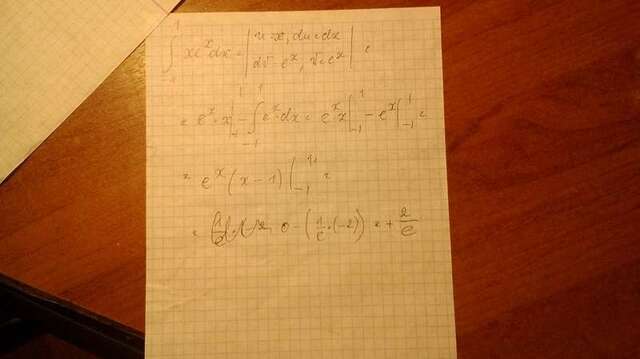 ∫_{-1}^{1} xe^x dx = | u=x, du=dx
dv=e^x, v=e^x | =
= e^x·x |_{-1}^{1} - ∫_{-1}^{1} e^x·dx = e^x x |_{-1}^{1} - e^x |_{-1}^{1} =
= e^x (x-1) |_{-1}^{1} =
= 0 - (1/e·(-2)) = + 2/e